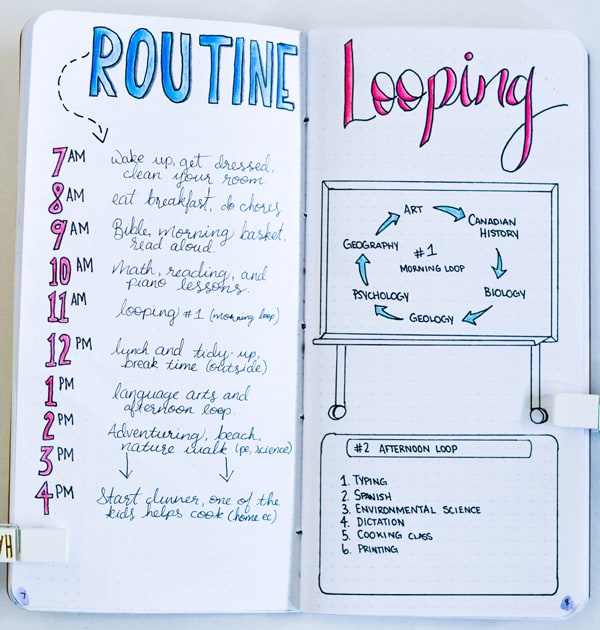 ROUTINE
7 AM wake up, get dressed,
clean your room
8 AM eat breakfast, do chores
9 AM Bible, morning basket,
read aloud.
10 AM Math, reading, and
piano lessons.
11 AM looping #1 (morning loop)
12 PM lunch and tidy-up,
break time (outside)
1 PM language arts and
afternoon loop.
2 PM Adventuring, beach,
3 PM nature walk (pe, science)
4 PM Start dinner, one of the
kids helps cook (home ec)
7
Looping
ART
CANADIAN
HISTORY
BIOLOGY
GEOLOGY
PSYCHOLOGY
GEOGRAPHY
#1
MORNING LOOP
#2 AFTERNOON LOOP
1. TYPING
2. SPANISH
3. ENVIRONMENTAL SCIENCE
4. DICTATION
5. COOKING CLASS
6. PRINTING
8